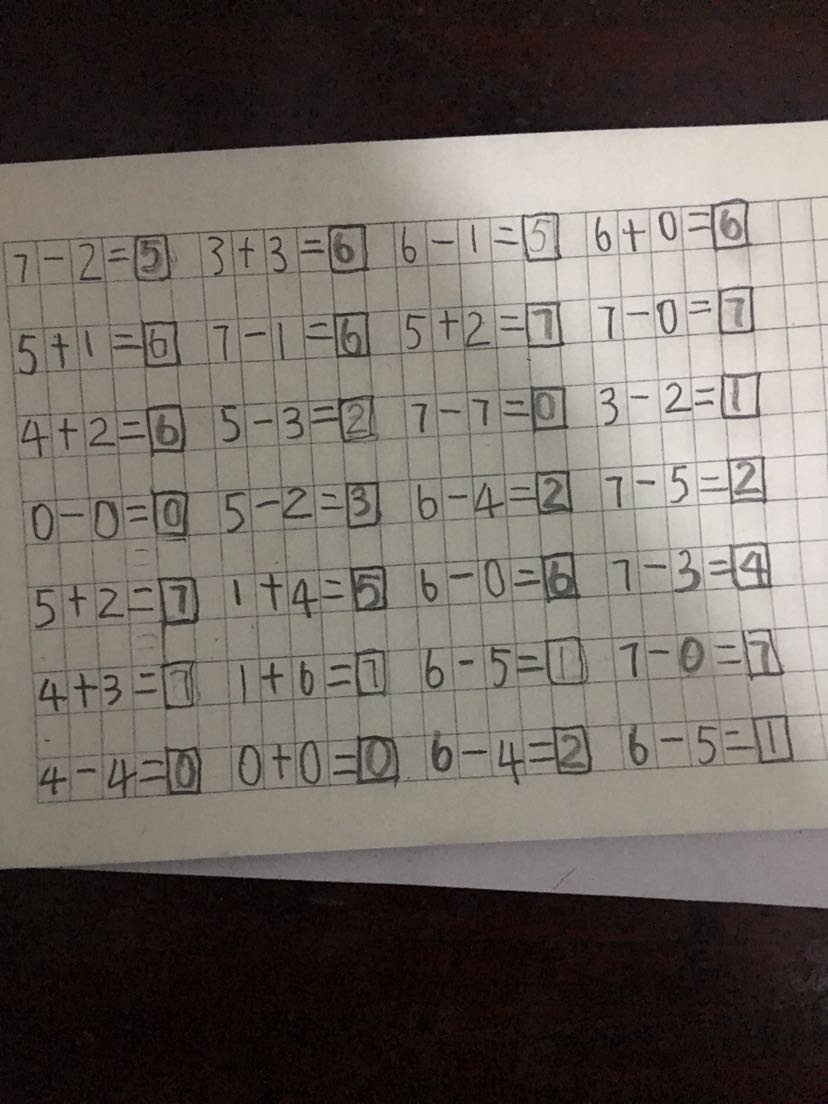 7-2=5 3+3=6 6-1=5 6+0=6
5+1=6 7-1=6 5+2=7 7-0=7
4+2=6 5-3=2 7-7=0 3-2=1
0-0=0 5-2=3 6-4=2 7-5=2
5+2=7 1+4=5 6-0=6 7-3=4
4+3=7 1+6=7 6-5=1 7-0=7
4-4=0 0+0=0 6-4=2 6-5=1